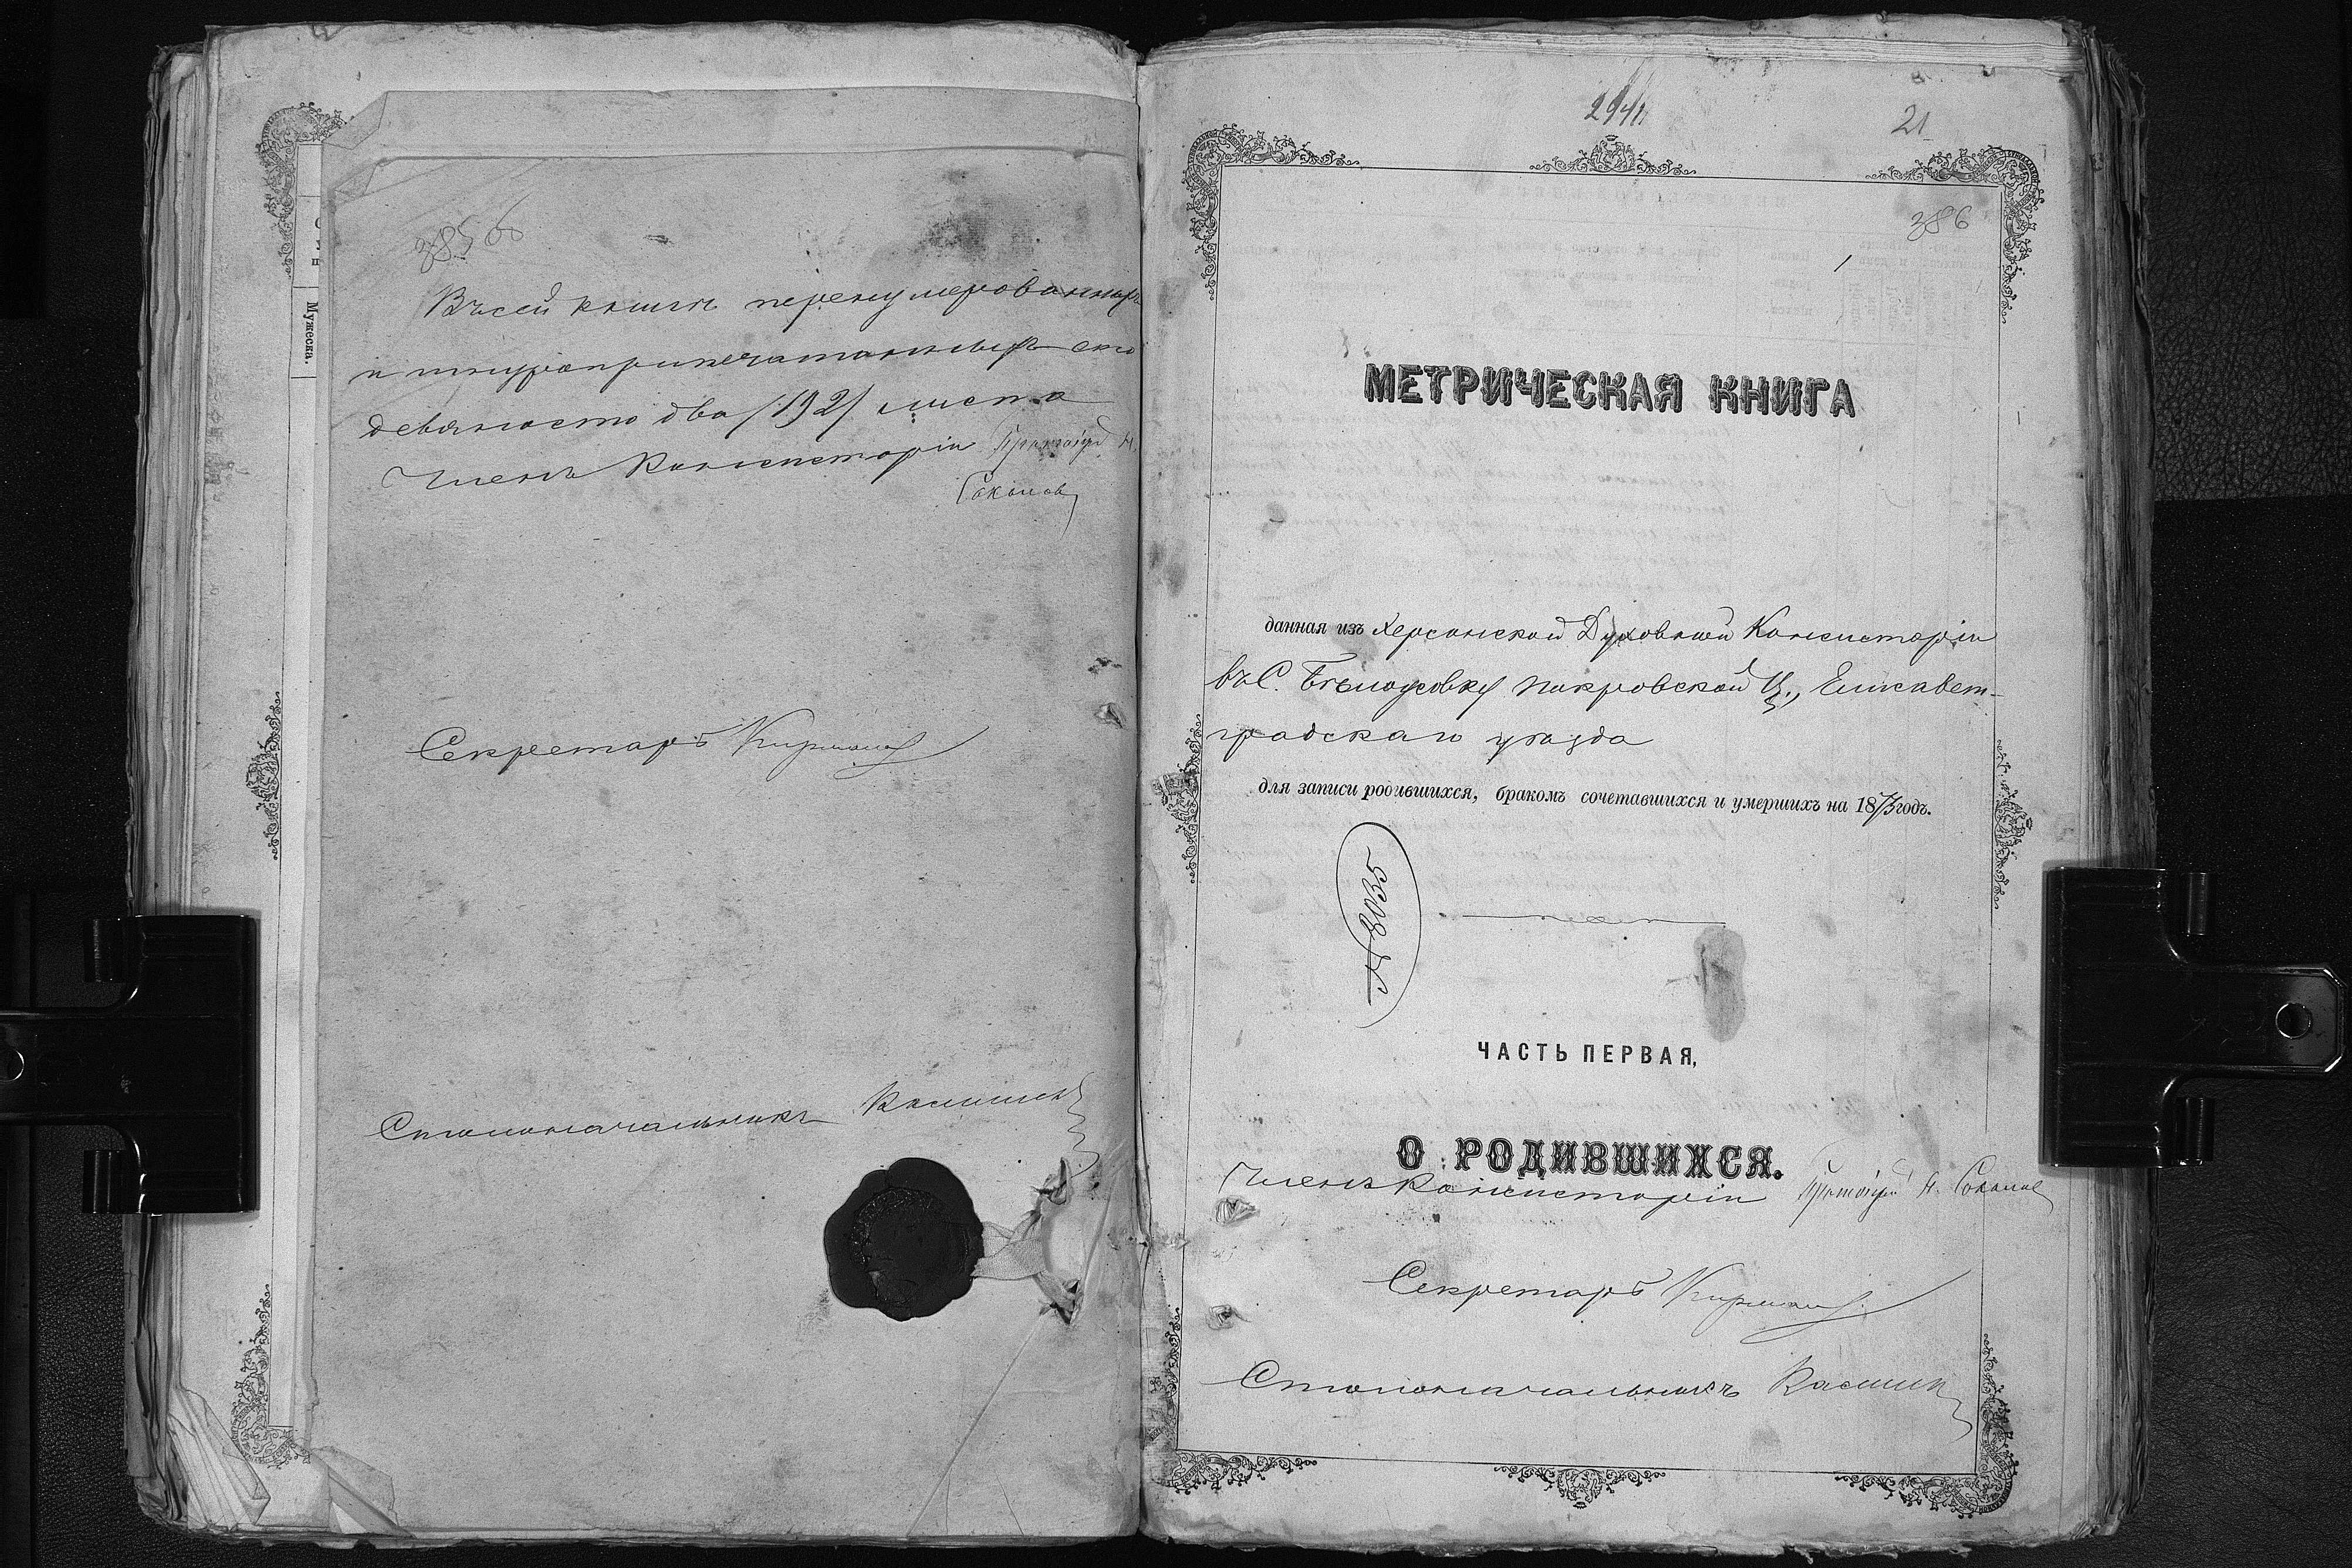 385 об
Въ сей книгѣ перенумерованныхъ
и шнуроприпечатанныхъ сто
девяносто два /192/ листа
Членъ Консисторіи Протоіерей Н.
Соколовъ
Секретарь
Столоначальникъ
Мужеска.
294
21
386
1
МЕТРИЧЕСКАЯ КНИГА
данная изъ Херсонской Духовной Консисторіи
въ С. Бѣлоусовку Покровской Ц., Елисавет-
градскаго уѣзда
для записи родившихся, бракомъ сочетавшихся и умершихъ на 1873 годъ.
№ 8035
ЧАСТЬ ПЕРВАЯ,
О РОДИВШИХСЯ.
Членъ Консисторіи Протоіерей Н. Соколовъ
Секретарь
Столоначальникъ